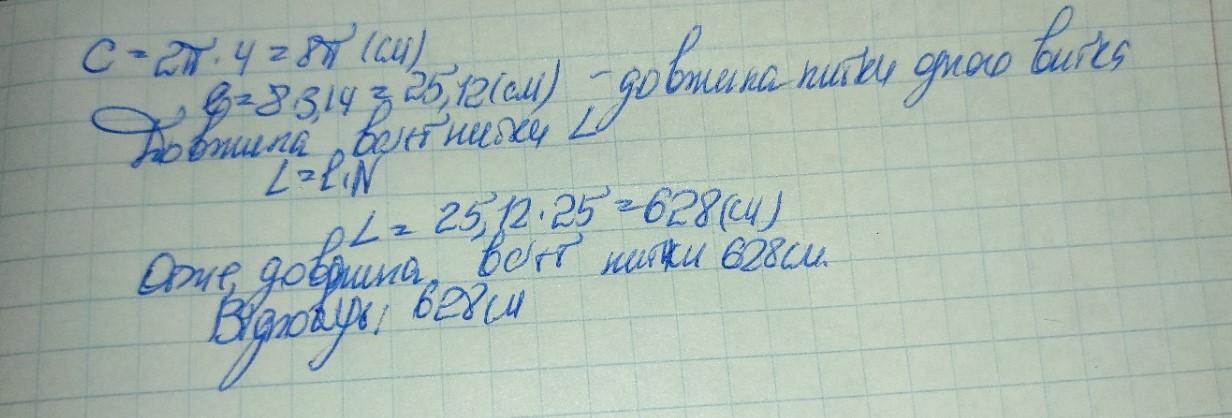 C = 2π · 4 = 8π (см)
C = 8·3,14 = 25,12 (см) - довжина нитки одного витка
Довжина всієї нитки L
L = l·N
L = 25,12 · 25 = 628 (см)
Отже, довжина всієї нитки 628 см.
Відповідь: 628 см